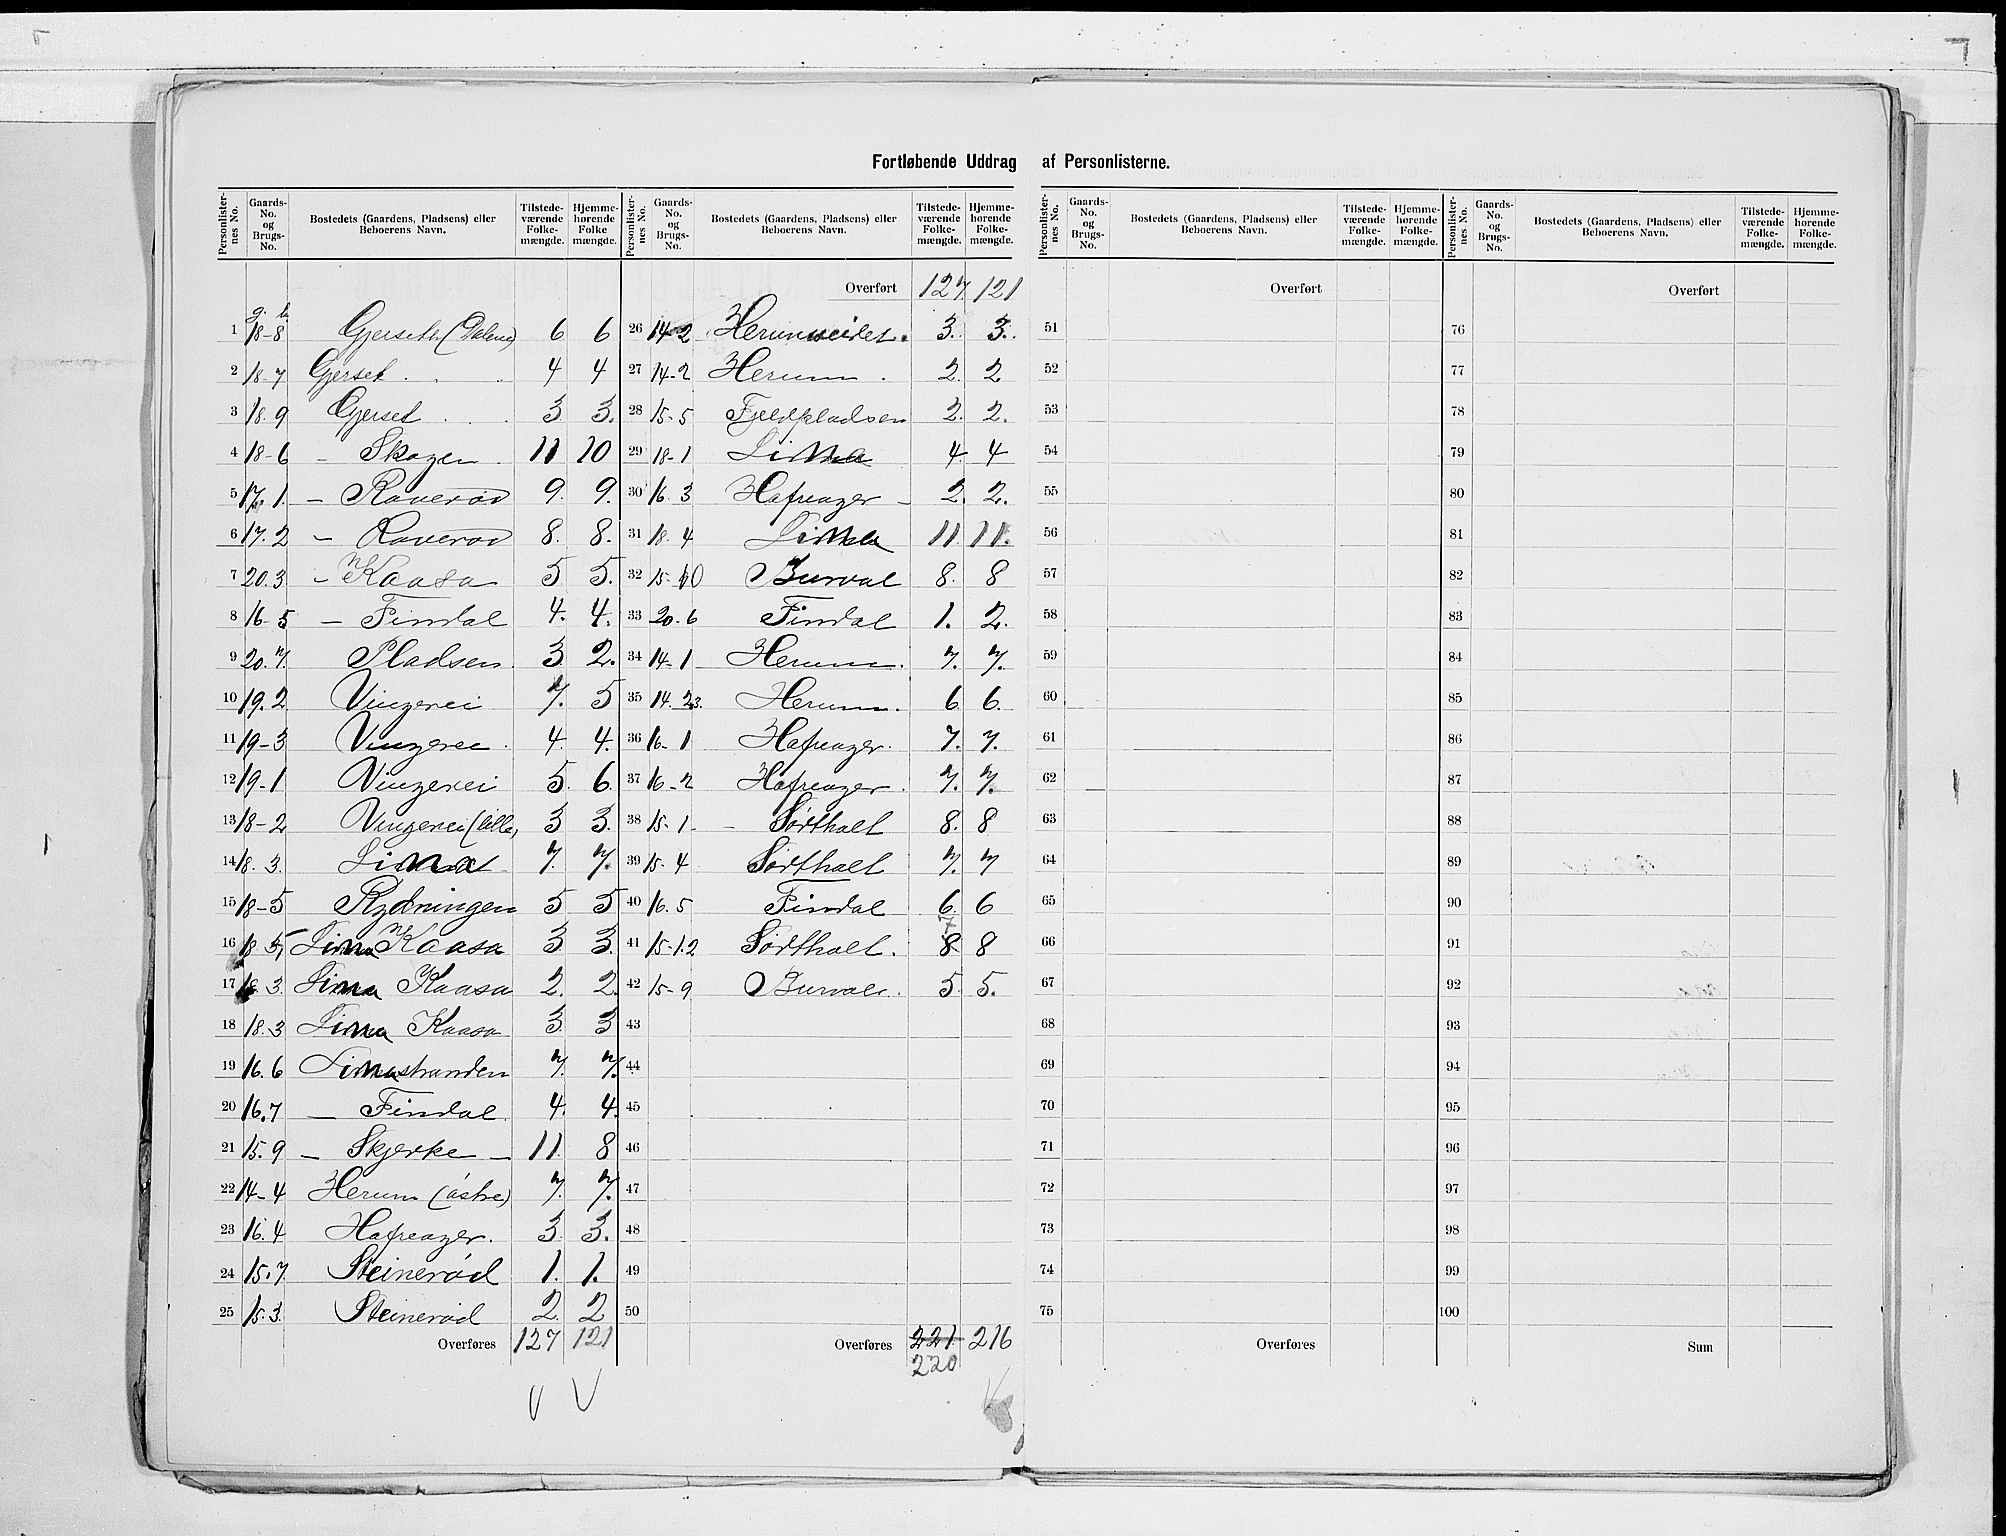 Fortløbende Uddrag af Personlisterne.
Personlister-nes No. | Gaards-No. og Brugs-No. | Bostedets (Gaardens, Pladsens) eller Beboerens Navn. | Tilstede-værende Folke-mængde. | Hjemme-hørende Folke mængde.
g. b.
1 18-8 Gjerseth (Dalene) 6 6
2 18-7 Gjerset 4 4
3 18.9 Gjerset 3 3.
4 18-6 - Skogen 11 10
5 17.1. - Raverød 9. 9.
6 17.2 - Raverød 8. 8.
7 20.3 - Kaasa 5 5.
8 16-5 - Findal 4. 4.
9 20.7. Pladsen 3 2.
10 19.2 Vingerei 7. 5
11 19-3 Vingerei 4. 4.
12 19-1 Vingerei 5. 6.
13 18-2 Vingerei (lille) 3 3.
14 18.3. Lima 7. 7.
15 18-5 Rydningen 5 5
16 18.5 Lima Kaasa 3 3.
17 18.3 Lima Kaasa 2. 2.
18 18.3 Lima Kaasa 3 3
19 16.6 Limastranden 7. 7.
20 16.7 - Findal 4. 4.
21 15.9 - Skjerke - 11. 8
22 14-4 Herum (østre) 7. 7.
23 16.4 Hafreager. 3. 3.
24 15.7 Steinerød 1. 1.
25 15.3. Steinerød 2. 2
Overføres 127 121
Personlister-nes No. | Gaards-No. og Brugs-No. | Bostedets (Gaardens, Pladsens) eller Beboerens Navn. | Tilstede-værende Folke-mængde. | Hjemme-hørende Folke-mængde.
Overført 127 121
26 14-2 Herumeidet. 3. 3.
27 14-2 Herum. 2. 2
28 15-5 Fjeldpladsen 2. 2.
29 18-1 Lima 4. 4
30 16.3 Hafreager - 2. 2.
31 18.4 Lima 11. 11.
32 15-10 Burval 8. 8
33 20.6 Findal 1. 2.
34 14-1 Herum. 7. 7.
35 14.23. Herum. 6. 6.
36 16-1 Hafreager. 7. 7.
37 16-2 Hafreager. 7. 7.
38 15-1. - Sørtholt 8. 8
39 15.4 Sørtholt 7. 7
40 16.5 Findal 6. 6
41 15-1.2 Sørtholt. 7 8 8
42 15-9 Burvall. 5. 5.
43
44
45
46
47
48
49
50
Overføres 221 216
220
Personlister-nes No. | Gaards-No. og Brugs-No. | Bostedets (Gaardens, Pladsens) eller Beboerens Navn. | Tilstede-værende Folke-mængde. | Hjemme-hørende Folke-mængde.
Overført
51
52
53
54
55
56
57
58
59
60
61
62
63
64
65
66
67
68
69
70
71
72
73
74
75
Overføres
Personlister-nes No. | Gaards-No. og Brugs-No. | Bostedets (Gaardens, Pladsens) eller Beboerens Navn. | Tilstede-værende Folke-mængde. | Hjemme-hørende Folke-mængde.
Overført
76
77
78
79
80
81
82
83
84
85
86
87
88
89
90
91
92
93
94
95
96
97
98
99
100
Sum